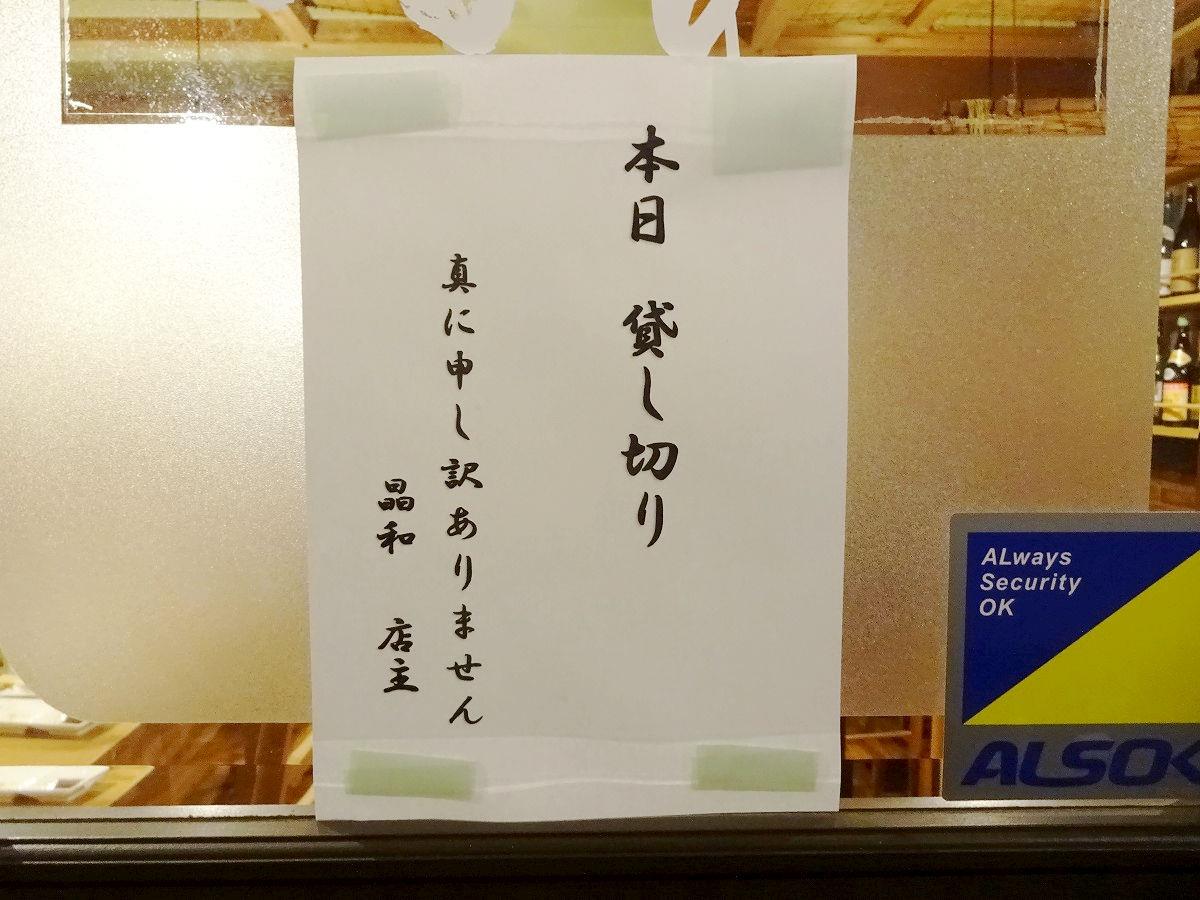 本日 貸し切り
真に申し訳ありません
晶和 店主
ALways
Security
OK
ALSOK